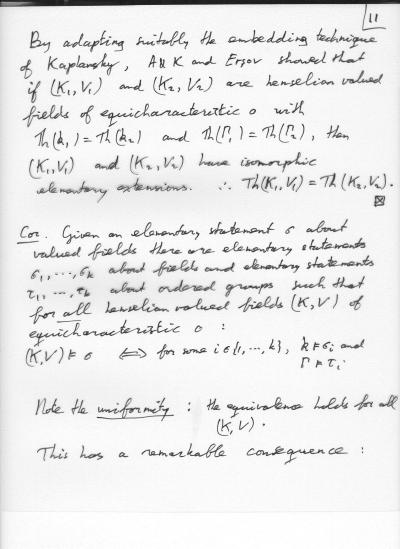 11
By adapting suitably the embedding technique
of Kaplansky, A & K and Ersov showed that
if (K₁,V₁) and (K₂,V₂) are henselian valued
fields of equicharacteristic 0 with
Th(k₁) = Th(k₂) and Th(Γ₁) = Th(Γ₂), then
(K₁,V₁) and (K₂,V₂) have isomorphic
elementary extensions. ∴ Th(K₁,V₁) = Th(K₂,V₂).
⊠
Cor. Given an elementary statement σ about
valued fields there are elementary statements
σ₁,...,σₖ about fields and elementary statements
τ₁,...,τₖ about ordered groups such that
for all henselian valued fields (K,V) of
equicharacteristic 0 :
(K,V) ⊨ σ ⟺ for some i ∈ {1,...,k}, k ⊨ σᵢ and
Γ ⊨ τᵢ.
Note the uniformity : the equivalence holds for all
(K,V).
This has a remarkable consequence :